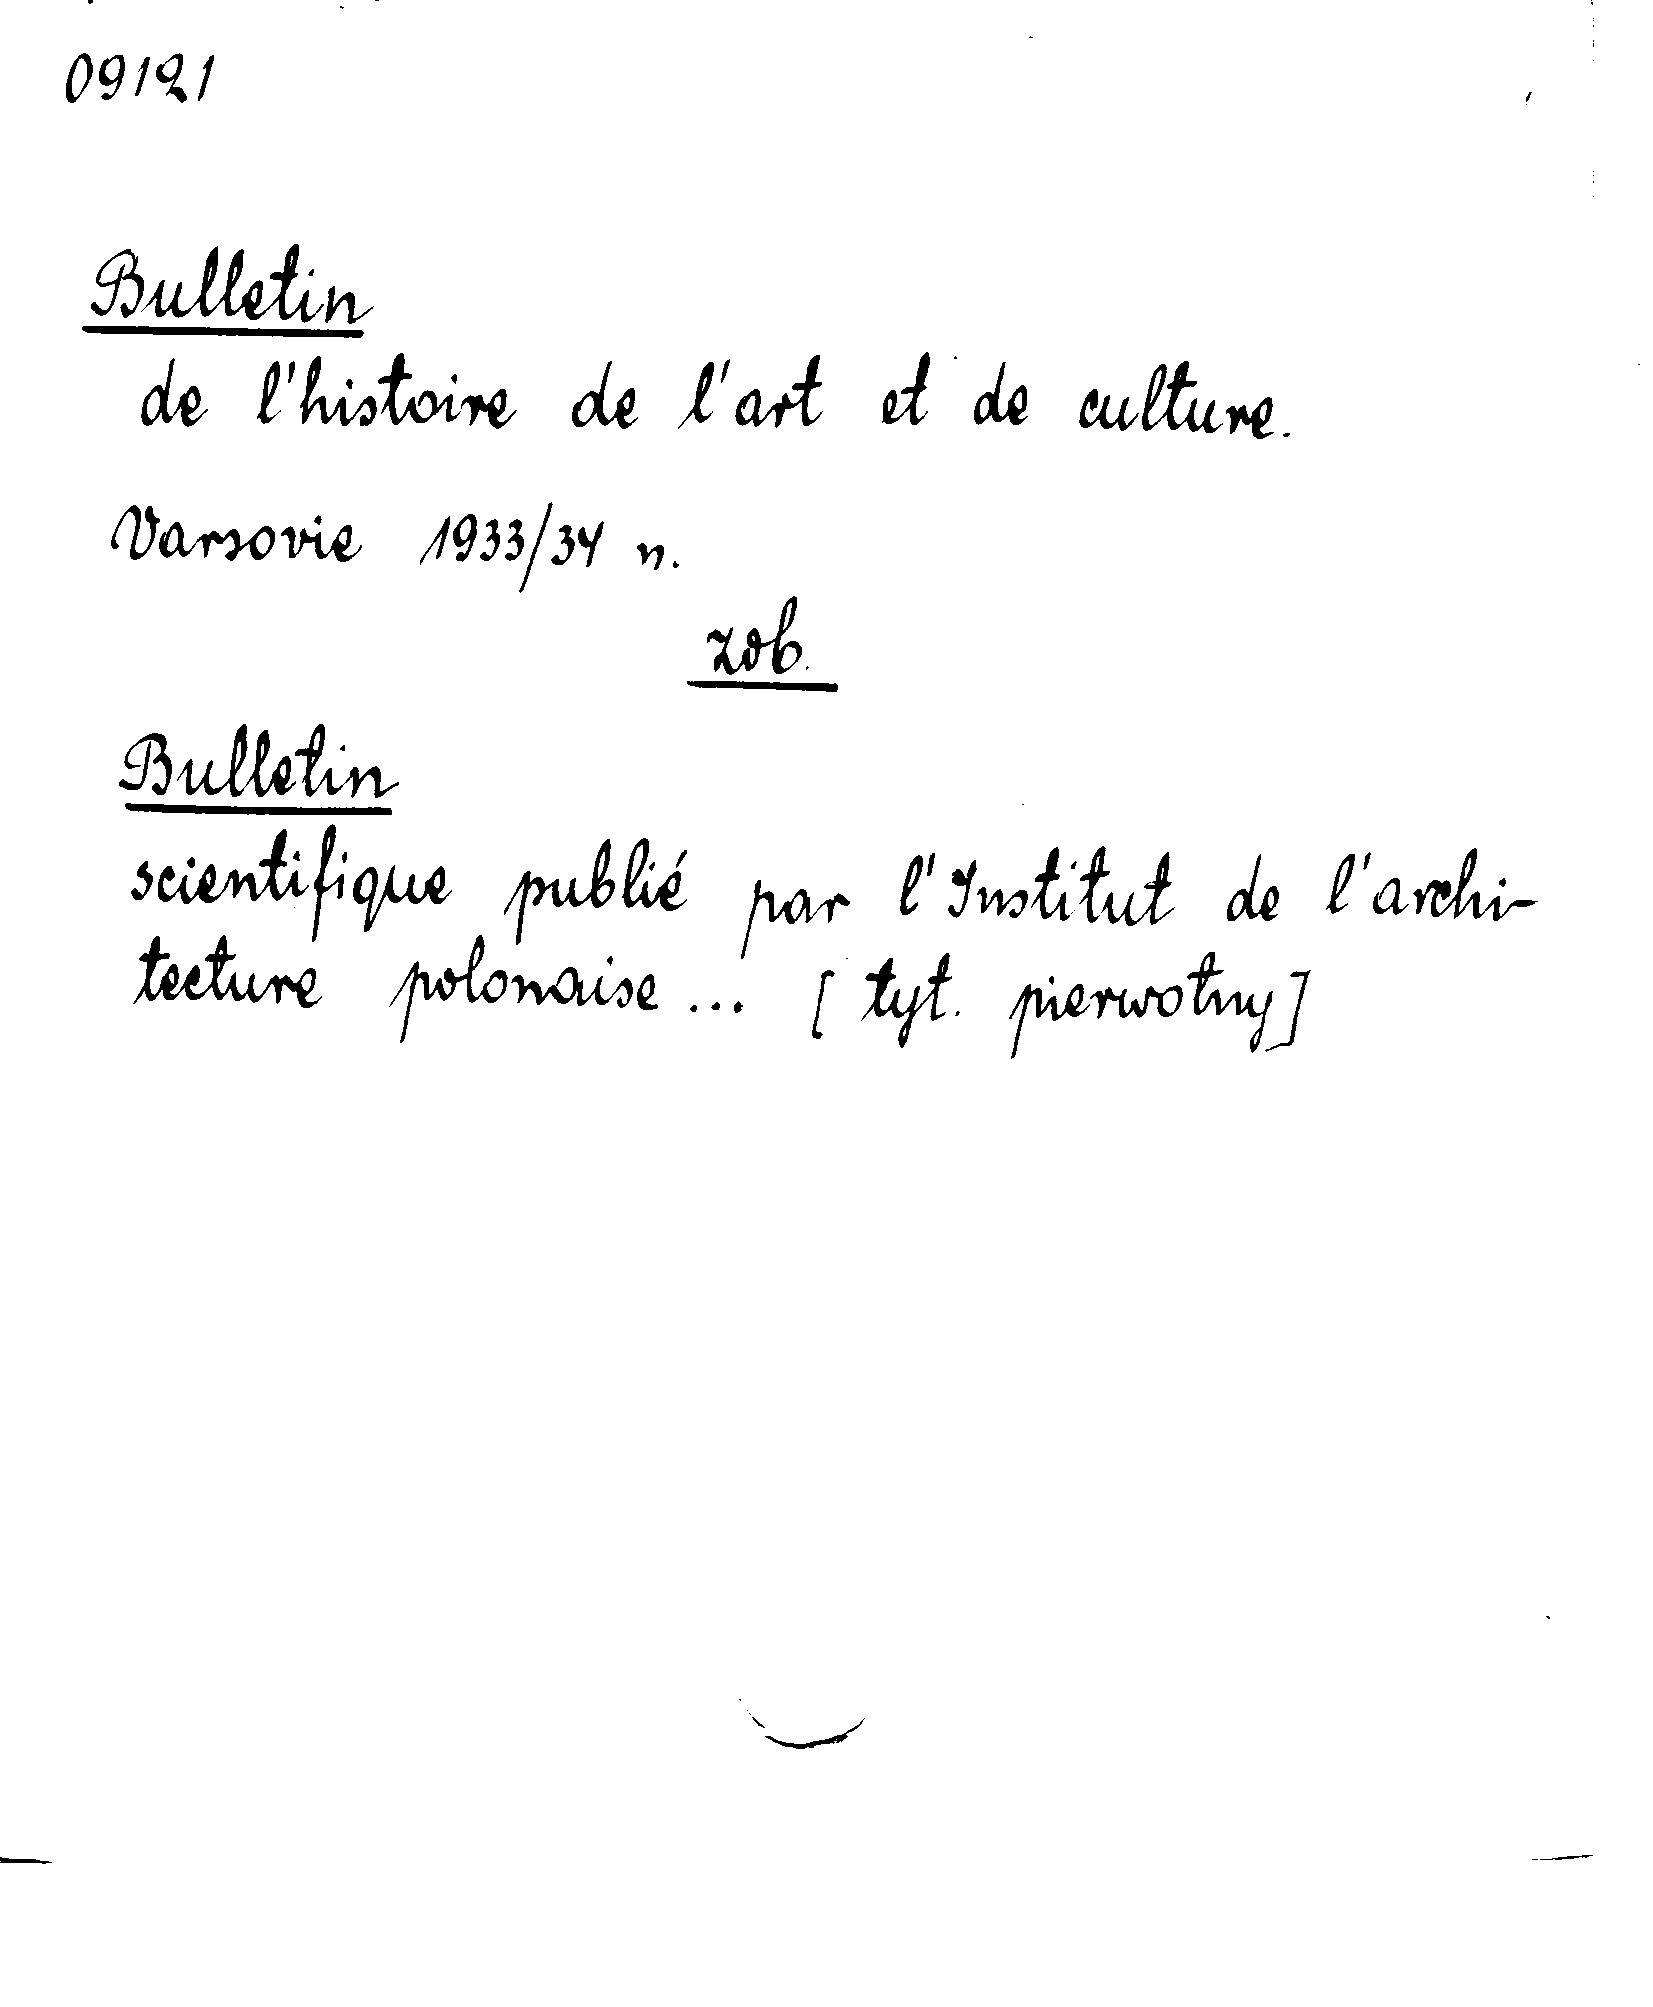 09121
Bulletin
de l'histoire de l'art et de culture.
Varsovie 1933/34 n.
zob.
Bulletin
scientifique publié par l'Institut de l'archi-
tecture polonaise... [tyt. pierwotny]